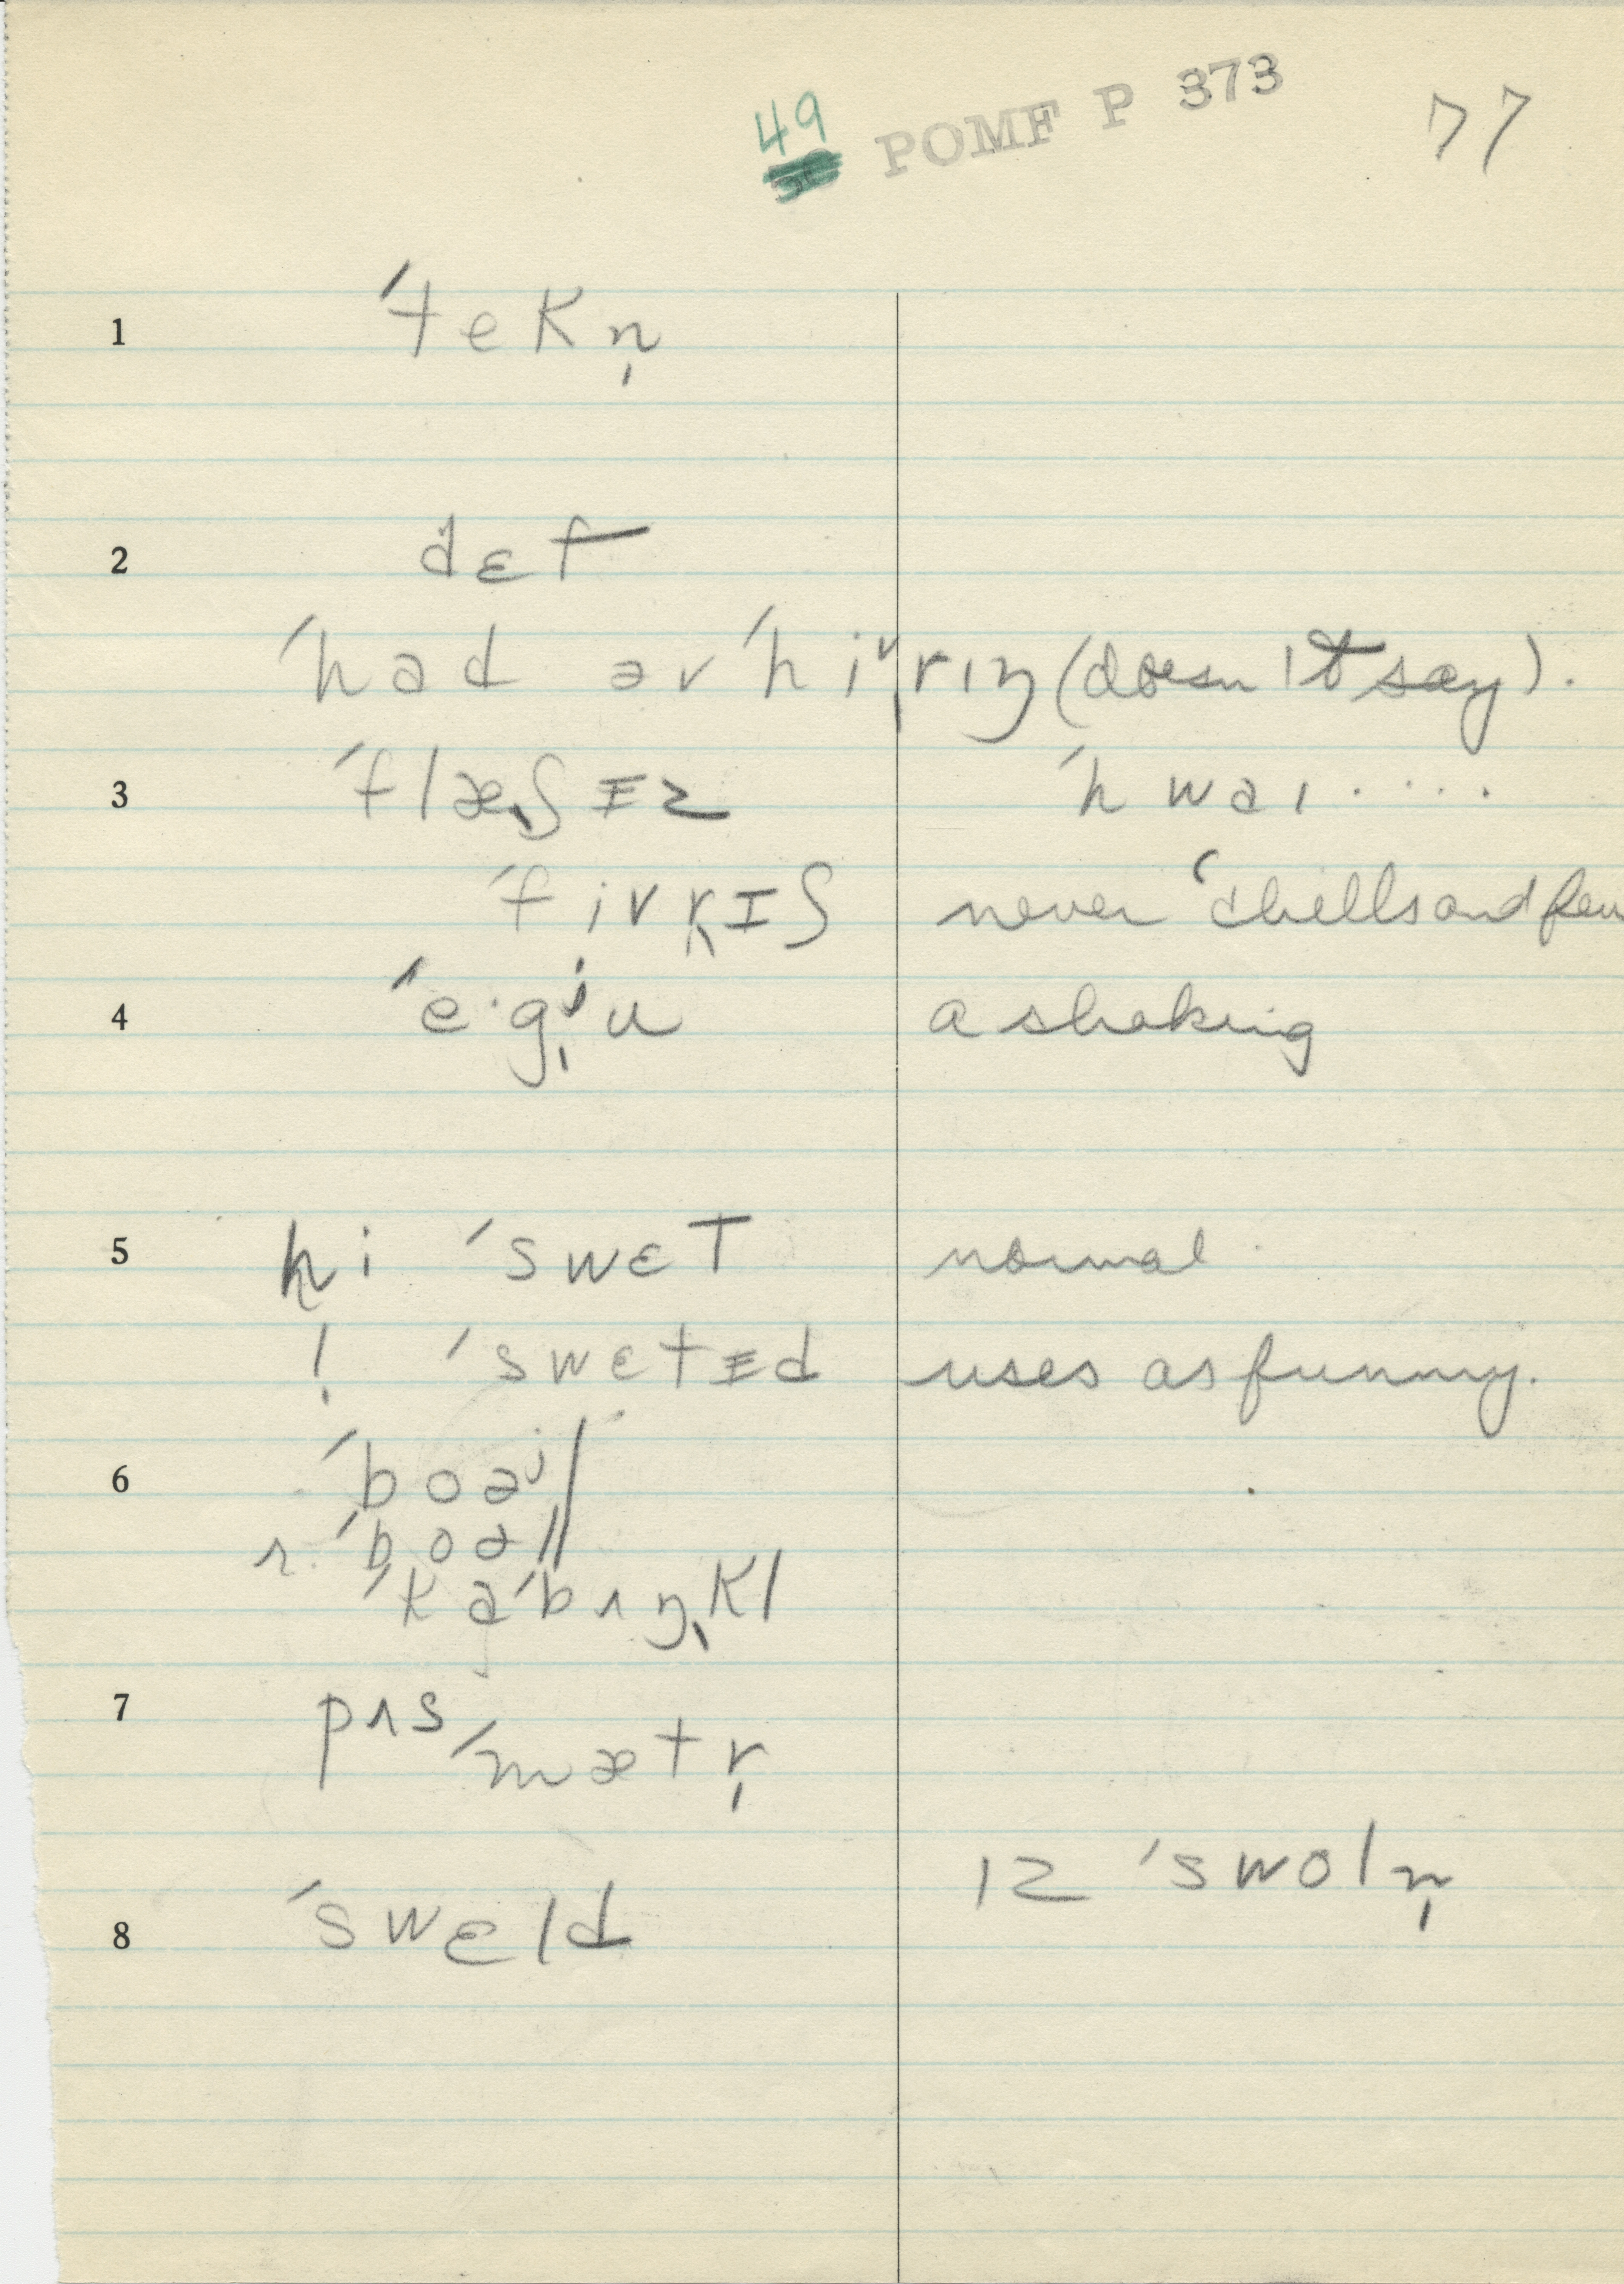 49 POMF P 373 77
1 ˈtekn̩
2 dɛf
ˈhad əv ˈhiᵛ̩rɪŋ (doesn't say).
3 ˈflæʃɪz ˈhwaɪ....
ˈfivrɪʃ never ˈchills and fev
4 ˈe·gʲu a shaking
5 hi ˈswɛt normal
! ˈswɛtɪd uses as funny.
6 ˈboəʲl
r. ˈboəl
ˈkaˈbʌŋkl
7 pʌsˈmætr̩
ɪz ˈswoln̩
8 ˈswɛld